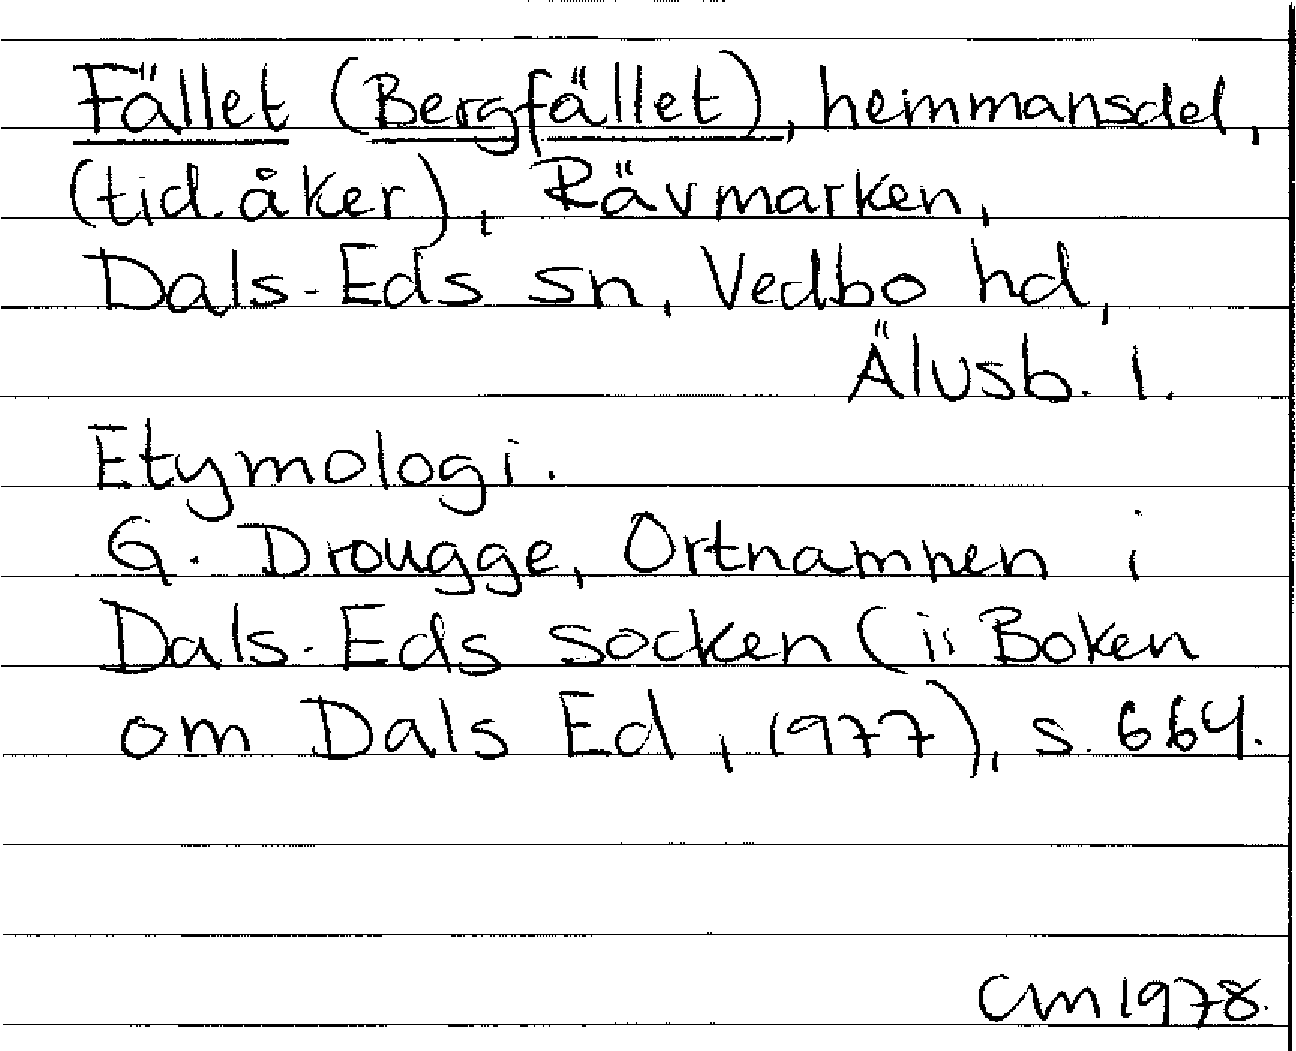 Fället (Bergfället), hemmansdel,
(tid. åker), Rävmarken,
Dals-Eds sn, Vedbo hd,
Älvsb. l.
Etymologi.
G. Drougge, Ortnamnen i
Dals-Eds socken (i: Boken
om Dals Ed, 1977), s. 664.
CM 1978.